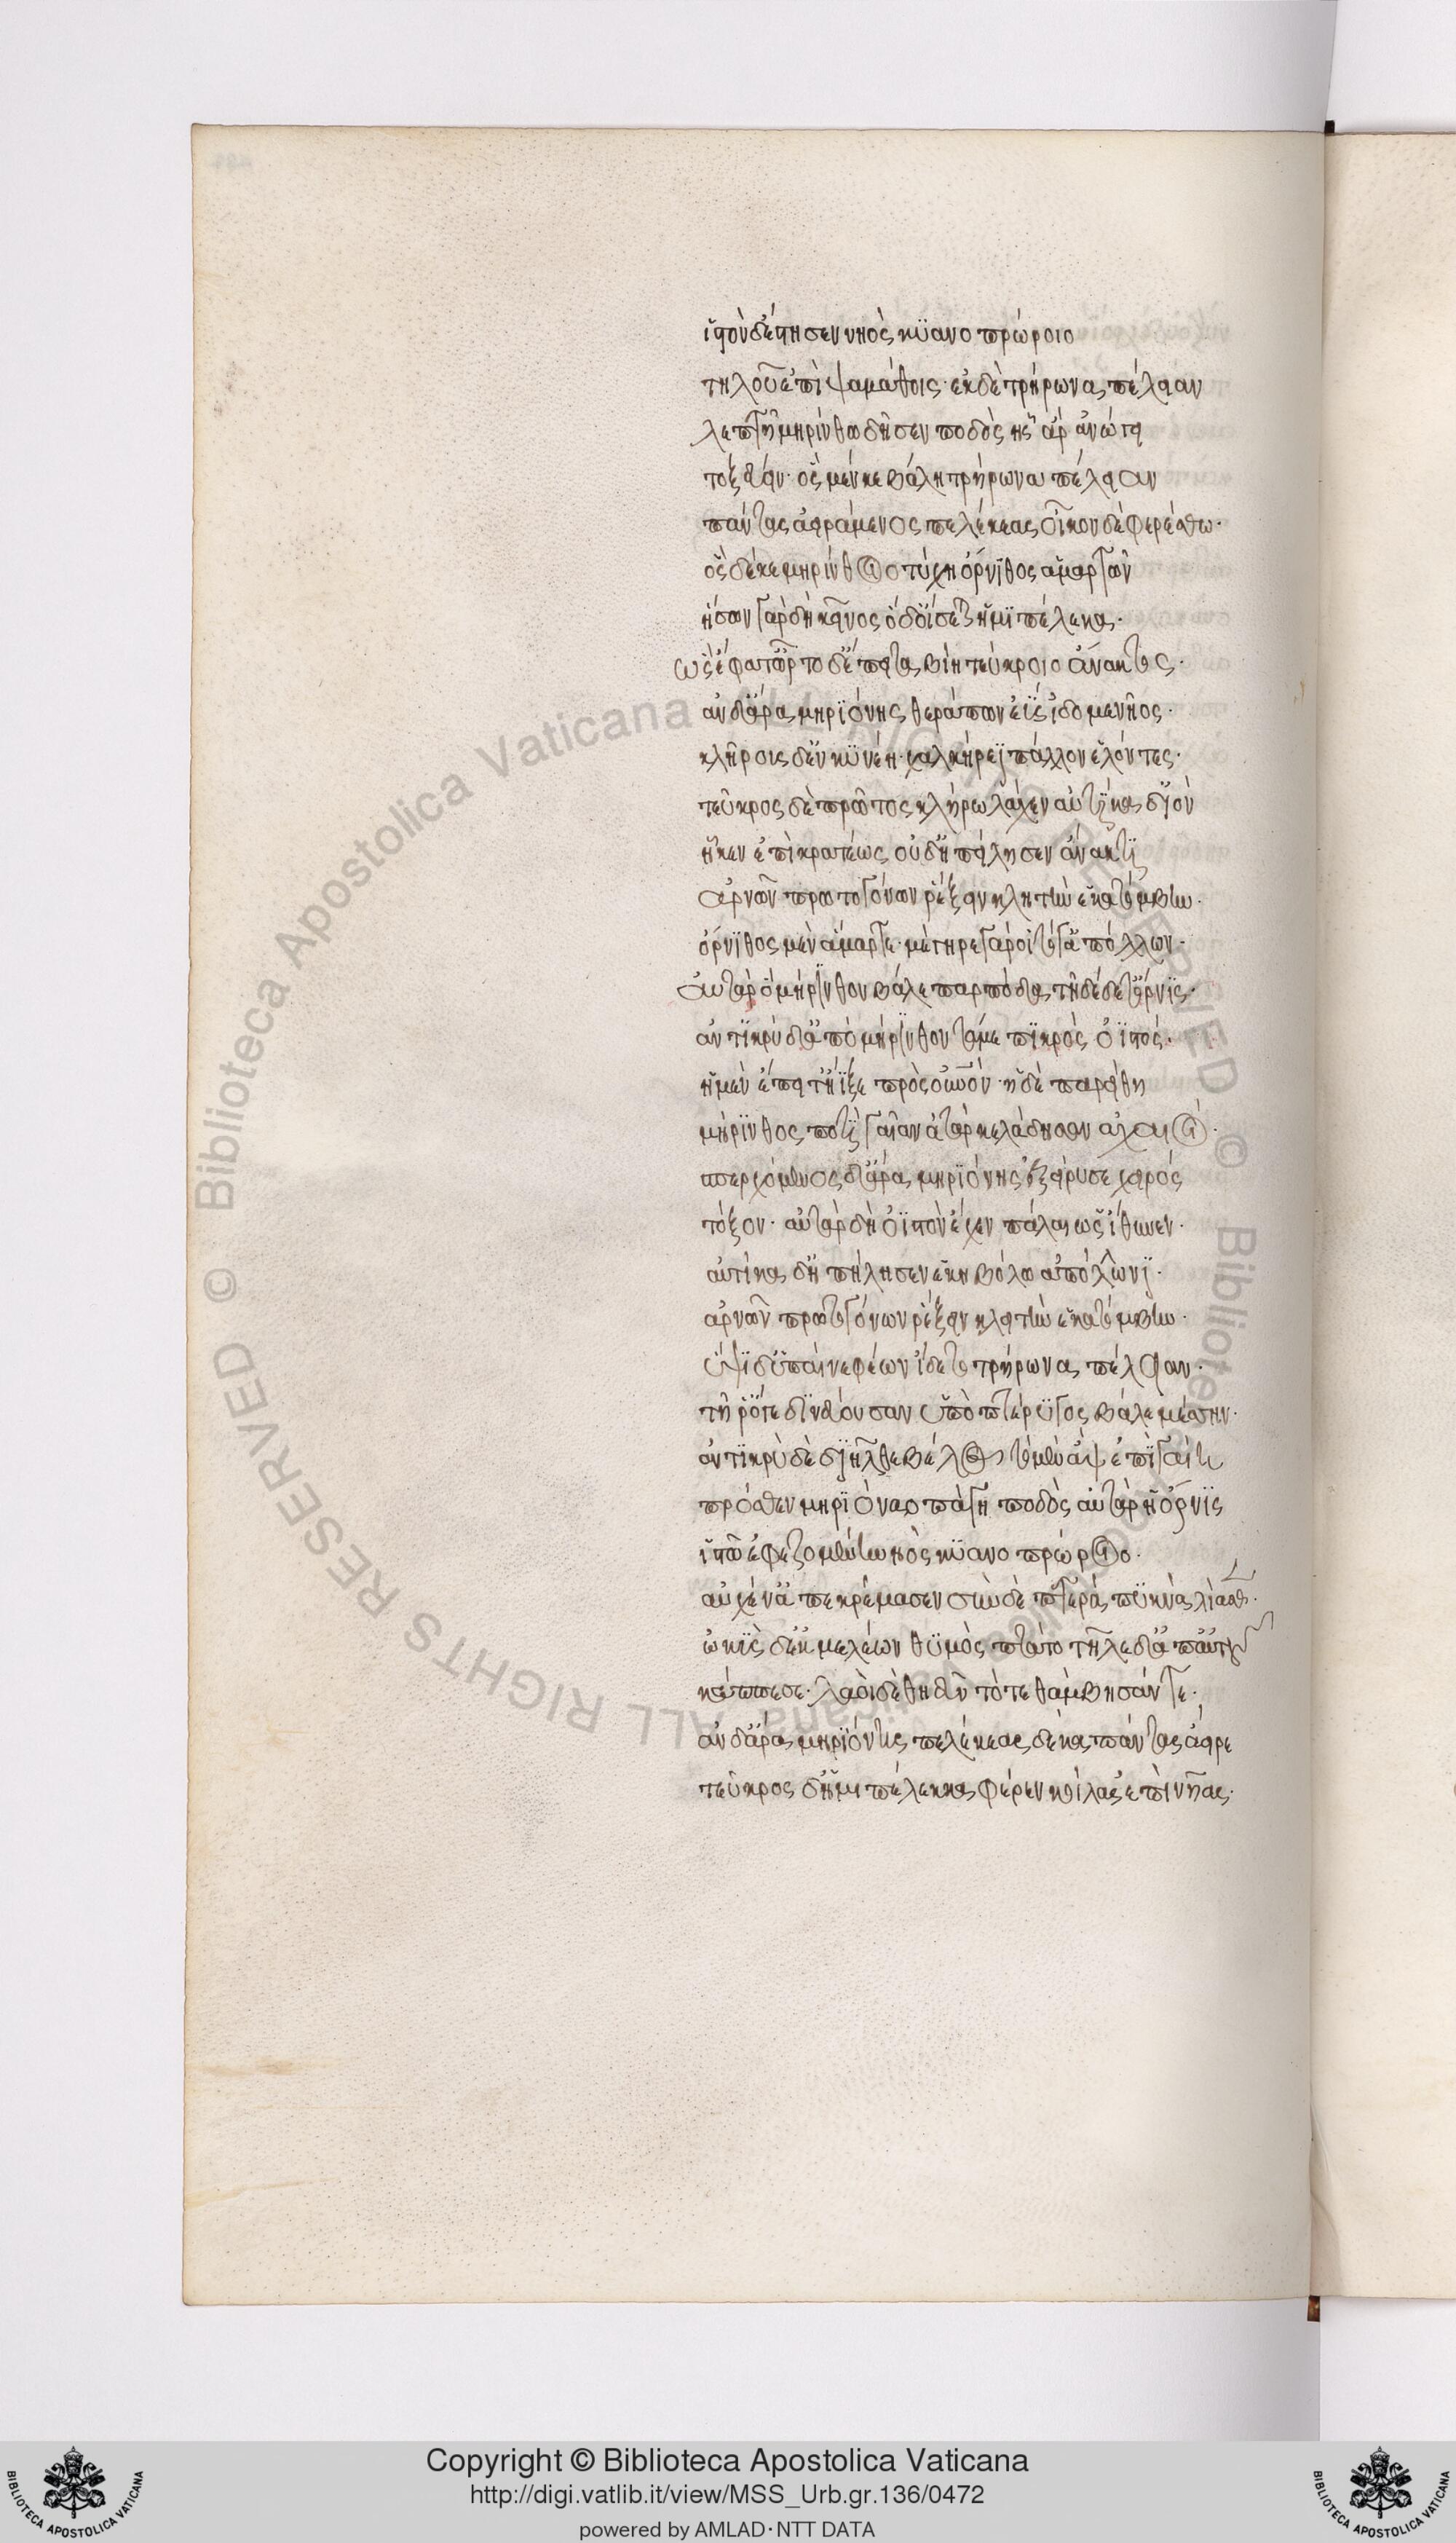 ἱστὸν δ' ἔστησεν νηὸς κϋανοπρώροιο
τηλοῦ ἐπὶ ψαμάθοις· ἐκ δὲ τρήρωνα πέλειαν
λεπτῇ μηρίνθω δῆσεν ποδὸς ἧς ἂρ ἀνώγει
τοξεύειν· ὃς μέν κε βάλη τρήρωνα πέλειαν
πάντας ἀειράμενος πελέκεας οἶκον δὲ φερέσθω·
ὃς δέ κε μηρίνθοιο τύχη ὄρνιθος ἁμαρτὼν
ἥσσων γὰρ δὴ κεῖνος ὁ δ' οἴσεται ἡμιπέλεκα·
ὣς ἔφατ' ὦρτο δ' ἔπειτα βίη τεύκροιο ἄνακτος·
ἂν δ' ἄρα μηριόνης θεράπων ἐῢς ἰδομενῆος·
κλήροις δ' ἐν κυνέη χαλκήρεϊ πάλλον ἑλόντες·
τεῦκρος δὲ πρῶτος κλήρω λάχεν αὐτίκα δ' ἰὸν
ἧκεν ἐπικρατέως οὐδ' ἠπείλησεν ἄνακτι
ἀρνῶν πρωτογόνων ῥέξειν κλητὴν ἑκατόμβην·
ὄρνιθος μὲν ἅμαρτε· μέγηρε γάρ οἱ τό γ' ἀπόλλων·
αὐτὰρ ὃ μήρινθον βάλε παρ πόδα τῆ δέδετ' ὄρνις·
ἀντικρὺ δ' ἀπὸ μήρινθον τάμε πικρὸς ὀϊστός·
ἡ μὲν ἔπειτ' ἤϊξε πρὸς οὐρανόν· ἡ δὲ παρείθη
μήρινθος ποτὶ γαῖαν ἀτὰρ κελάδησαν ἀχαιοί·
σπερχόμενος δ' ἄρα μηριόνης ἐξείρυσε χειρός
τόξον· αὐτὰρ δὴ ὀϊστὸν ἔχεν πάλαι ὡς ἴθυνεν·
αὐτίκα δ' ἠπείλησεν ἑκηβόλω ἀπόλλωνι·
ἀρνῶν πρωτογόνων ῥέξειν κλειτὴν ἑκατόμβην·
ὕψι δ' ὑπαὶ νεφέων ἴδετο τρήρωνα πέλειαν·
τῆ ῥ' ὅγε δινεύουσαν ὑπὸ πτέρυγος βάλε μέσσην·
ἀντικρὺ δὲ διῆλθε βέλος τὸ μὲν ἂψ ἐπὶ γαίη
πρόσθεν μηριόναο πάγη ποδὸς αὐτὰρ ἡ ὄρνις
ἱστῶ ἐφεζομένη νηὸς κυανοπρώροιο·
αὐχέν' ἀπεκρέμασεν σὺν δὲ πτερὰ πυκνὰ λίασθεν·
ὠκὺς δ' ἐκ μελέων θυμὸς πτάτο τῆλε δ' ἀπ' αὐτοῦ
κάππεσε· λαοὶ δὲ θηεῦντό τε θάμβησάν τε·
ἂν δ' ἄρα μηριόνης πελέκεας δέκα πάντας ἄειρε
τεῦκρος δ' ἡμιπέλεκκα φέρεν κοίλας ἐπὶ νῆας·
Copyright © Biblioteca Apostolica Vaticana
http://digi.vatlib.it/view/MSS_Urb.gr.136/0472
powered by AMLAD·NTT DATA
BIBLIOTECA APOSTOLICA VATICANA
BIBLIOTECA APOSTOLICA VATICANA
© Biblioteca Apostolica Vaticana ALL RIGHTS RESERVED